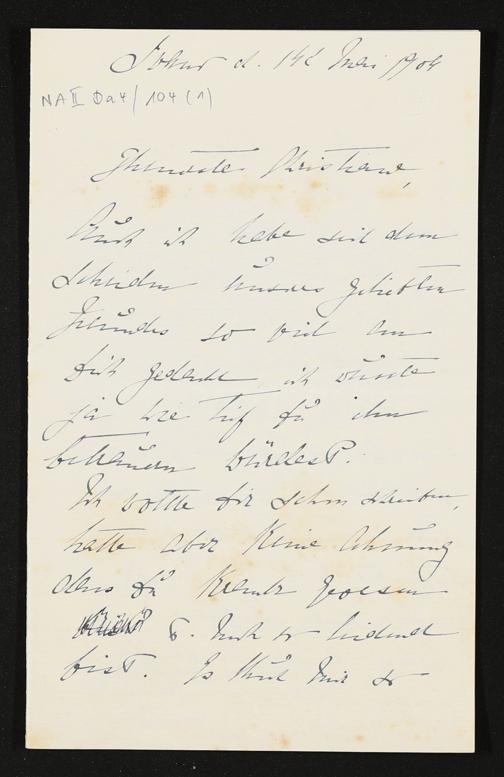 d. 14t Mai 1904
NA II Da 4 / 104 (1)
Christiane,
Auch ich habe seit dem
Scheiden unsres geliebten
Freundes so viel an
Dich gedacht, ich wusste
ja wie tief Du ihn
betrauern würdest.
Ich wollte Dir schon schreiben,
hatte aber keine Ahnung
dass Du krank gewesen
u. noch so leidend
bist. Es thut mir so